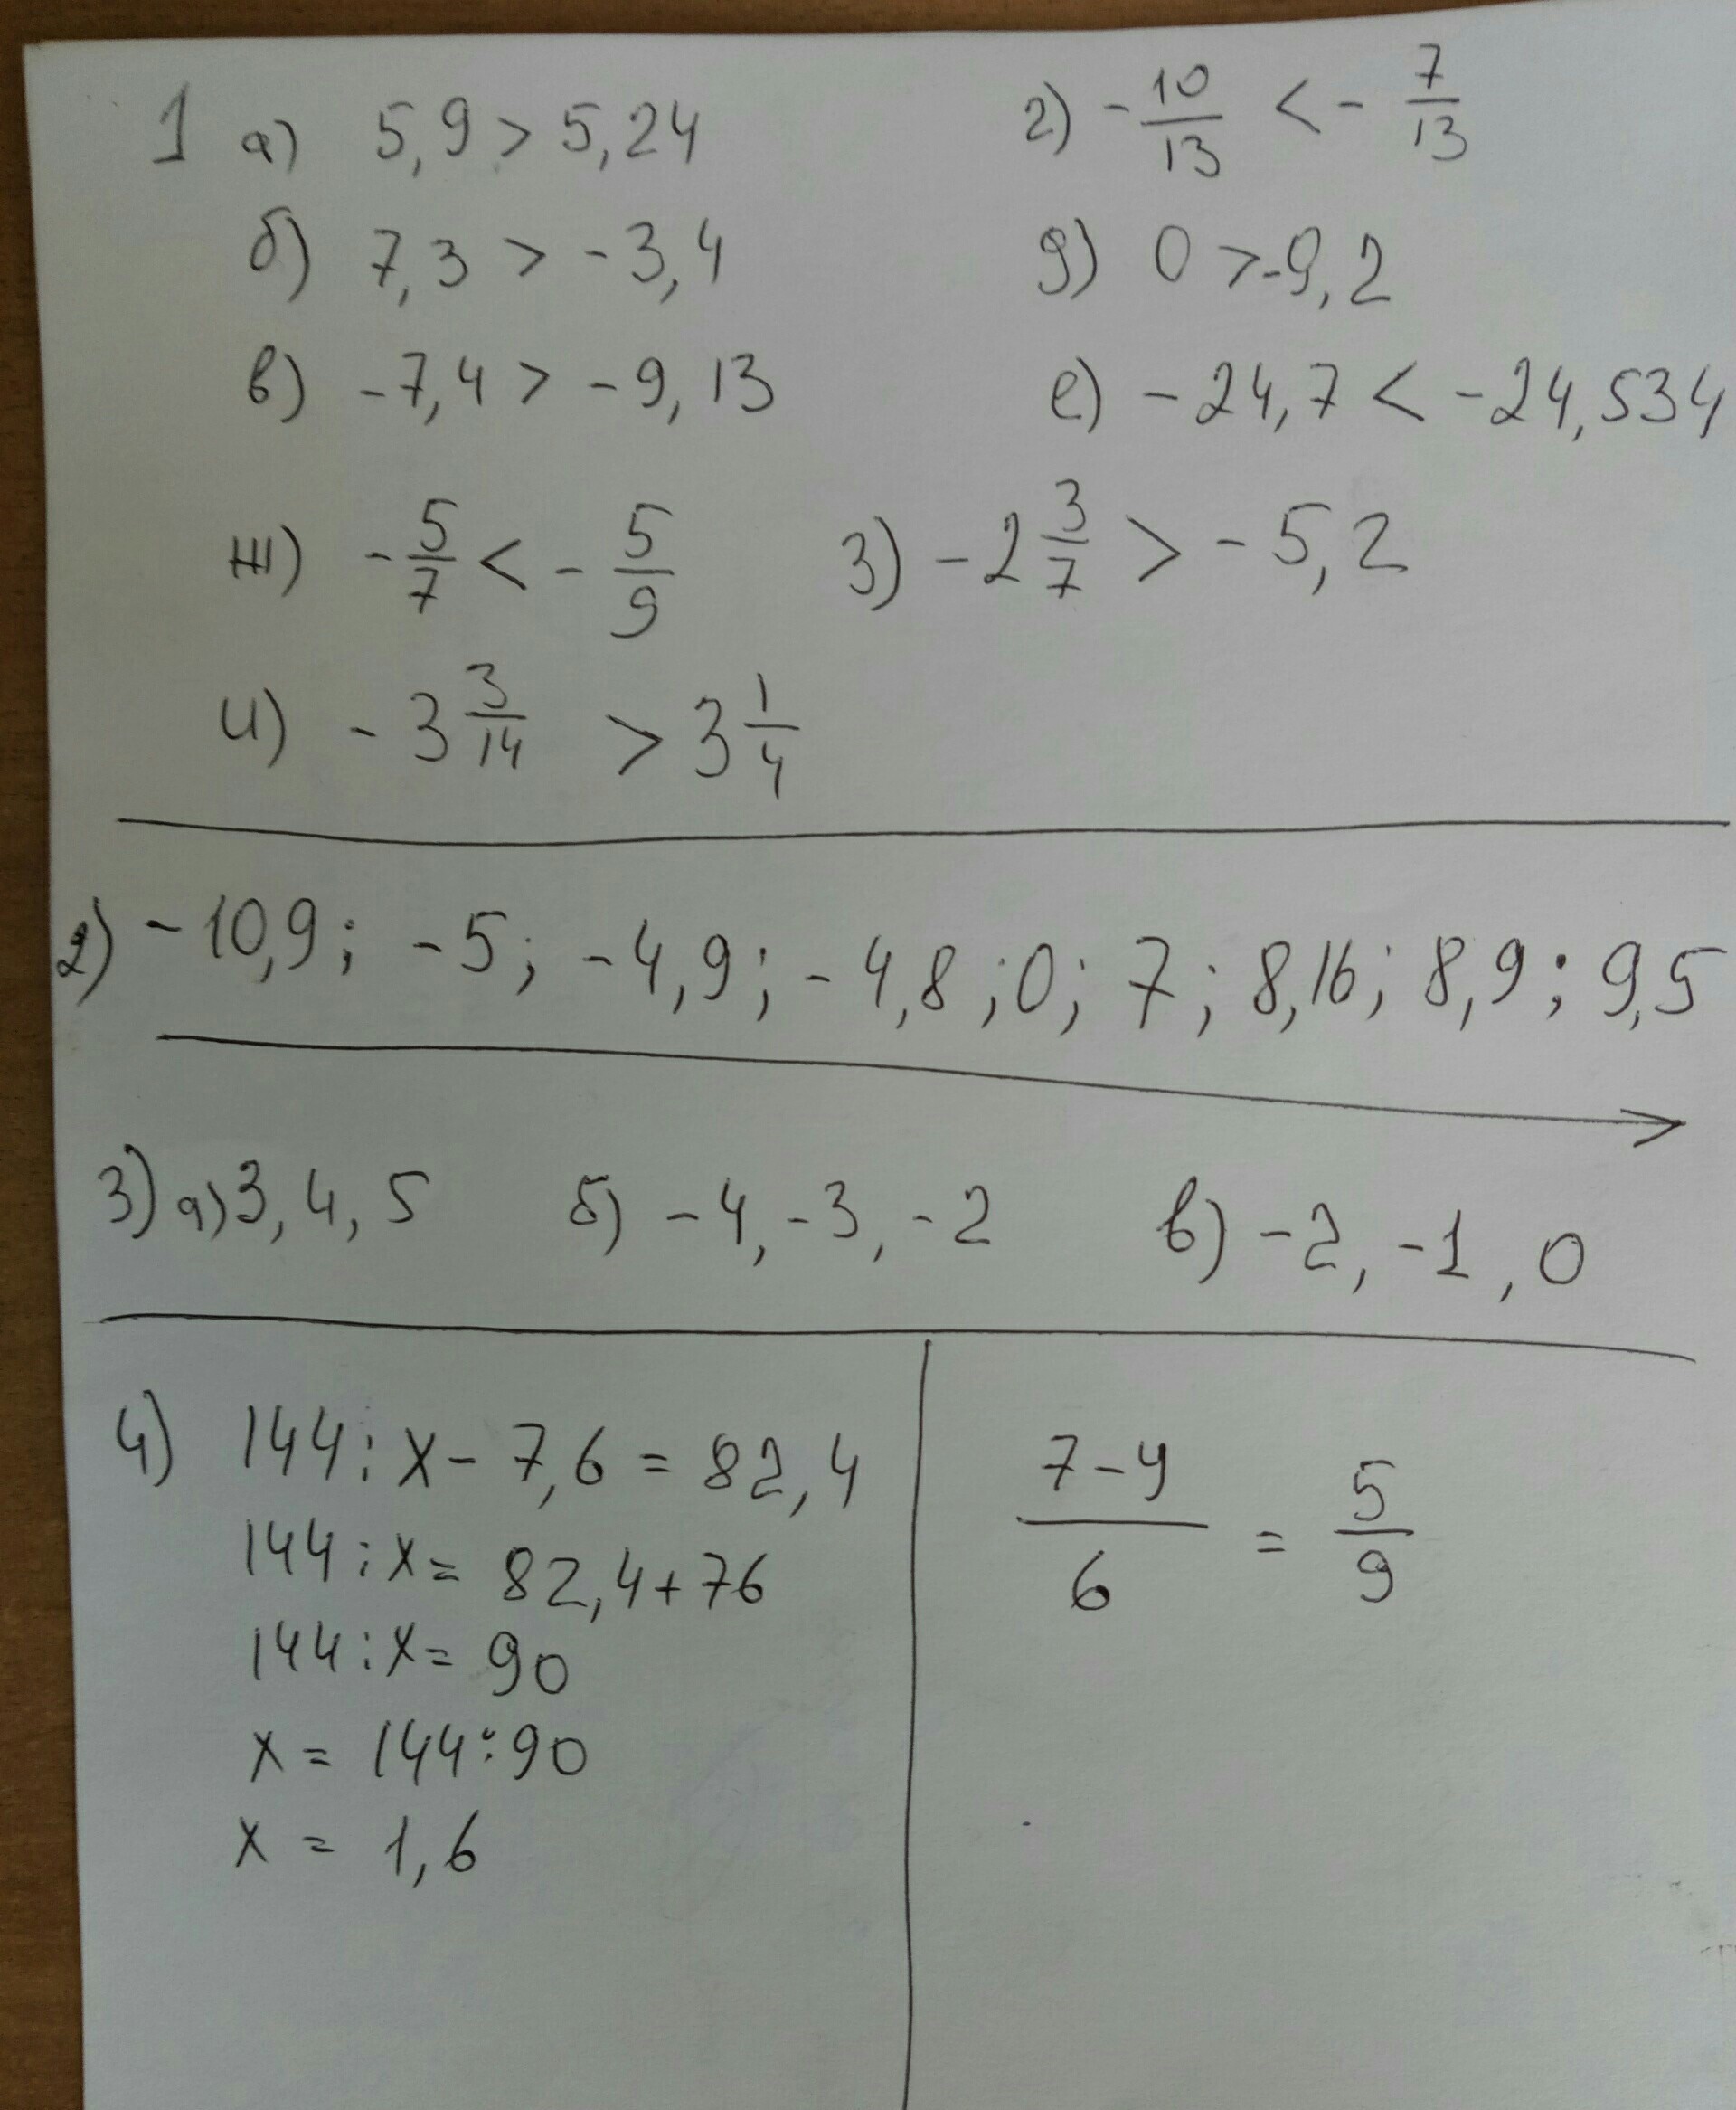 1 а) 5,9 > 5,24 г) -10/13 < -7/13
б) 7,3 > -3,4 д) 0 >-9,2
в) -7,4 > -9,13 е) -24,7 < -24,534
ж) -5/7 < -5/9 з) -2 3/7 > -5,2
и) -3 3/14 > 3 1/4
2) -10,9; -5; -4,9; -4,8; 0; 7; 8,16; 8,9; 9,5
3) а) 3, 4, 5 б) -4, -3, -2 в) -2, -1, 0
4) 144:x - 7,6 = 82,4
144:x = 82,4+76
144:x = 90
x = 144:90
x = 1,6
(7-y)/6 = 5/9